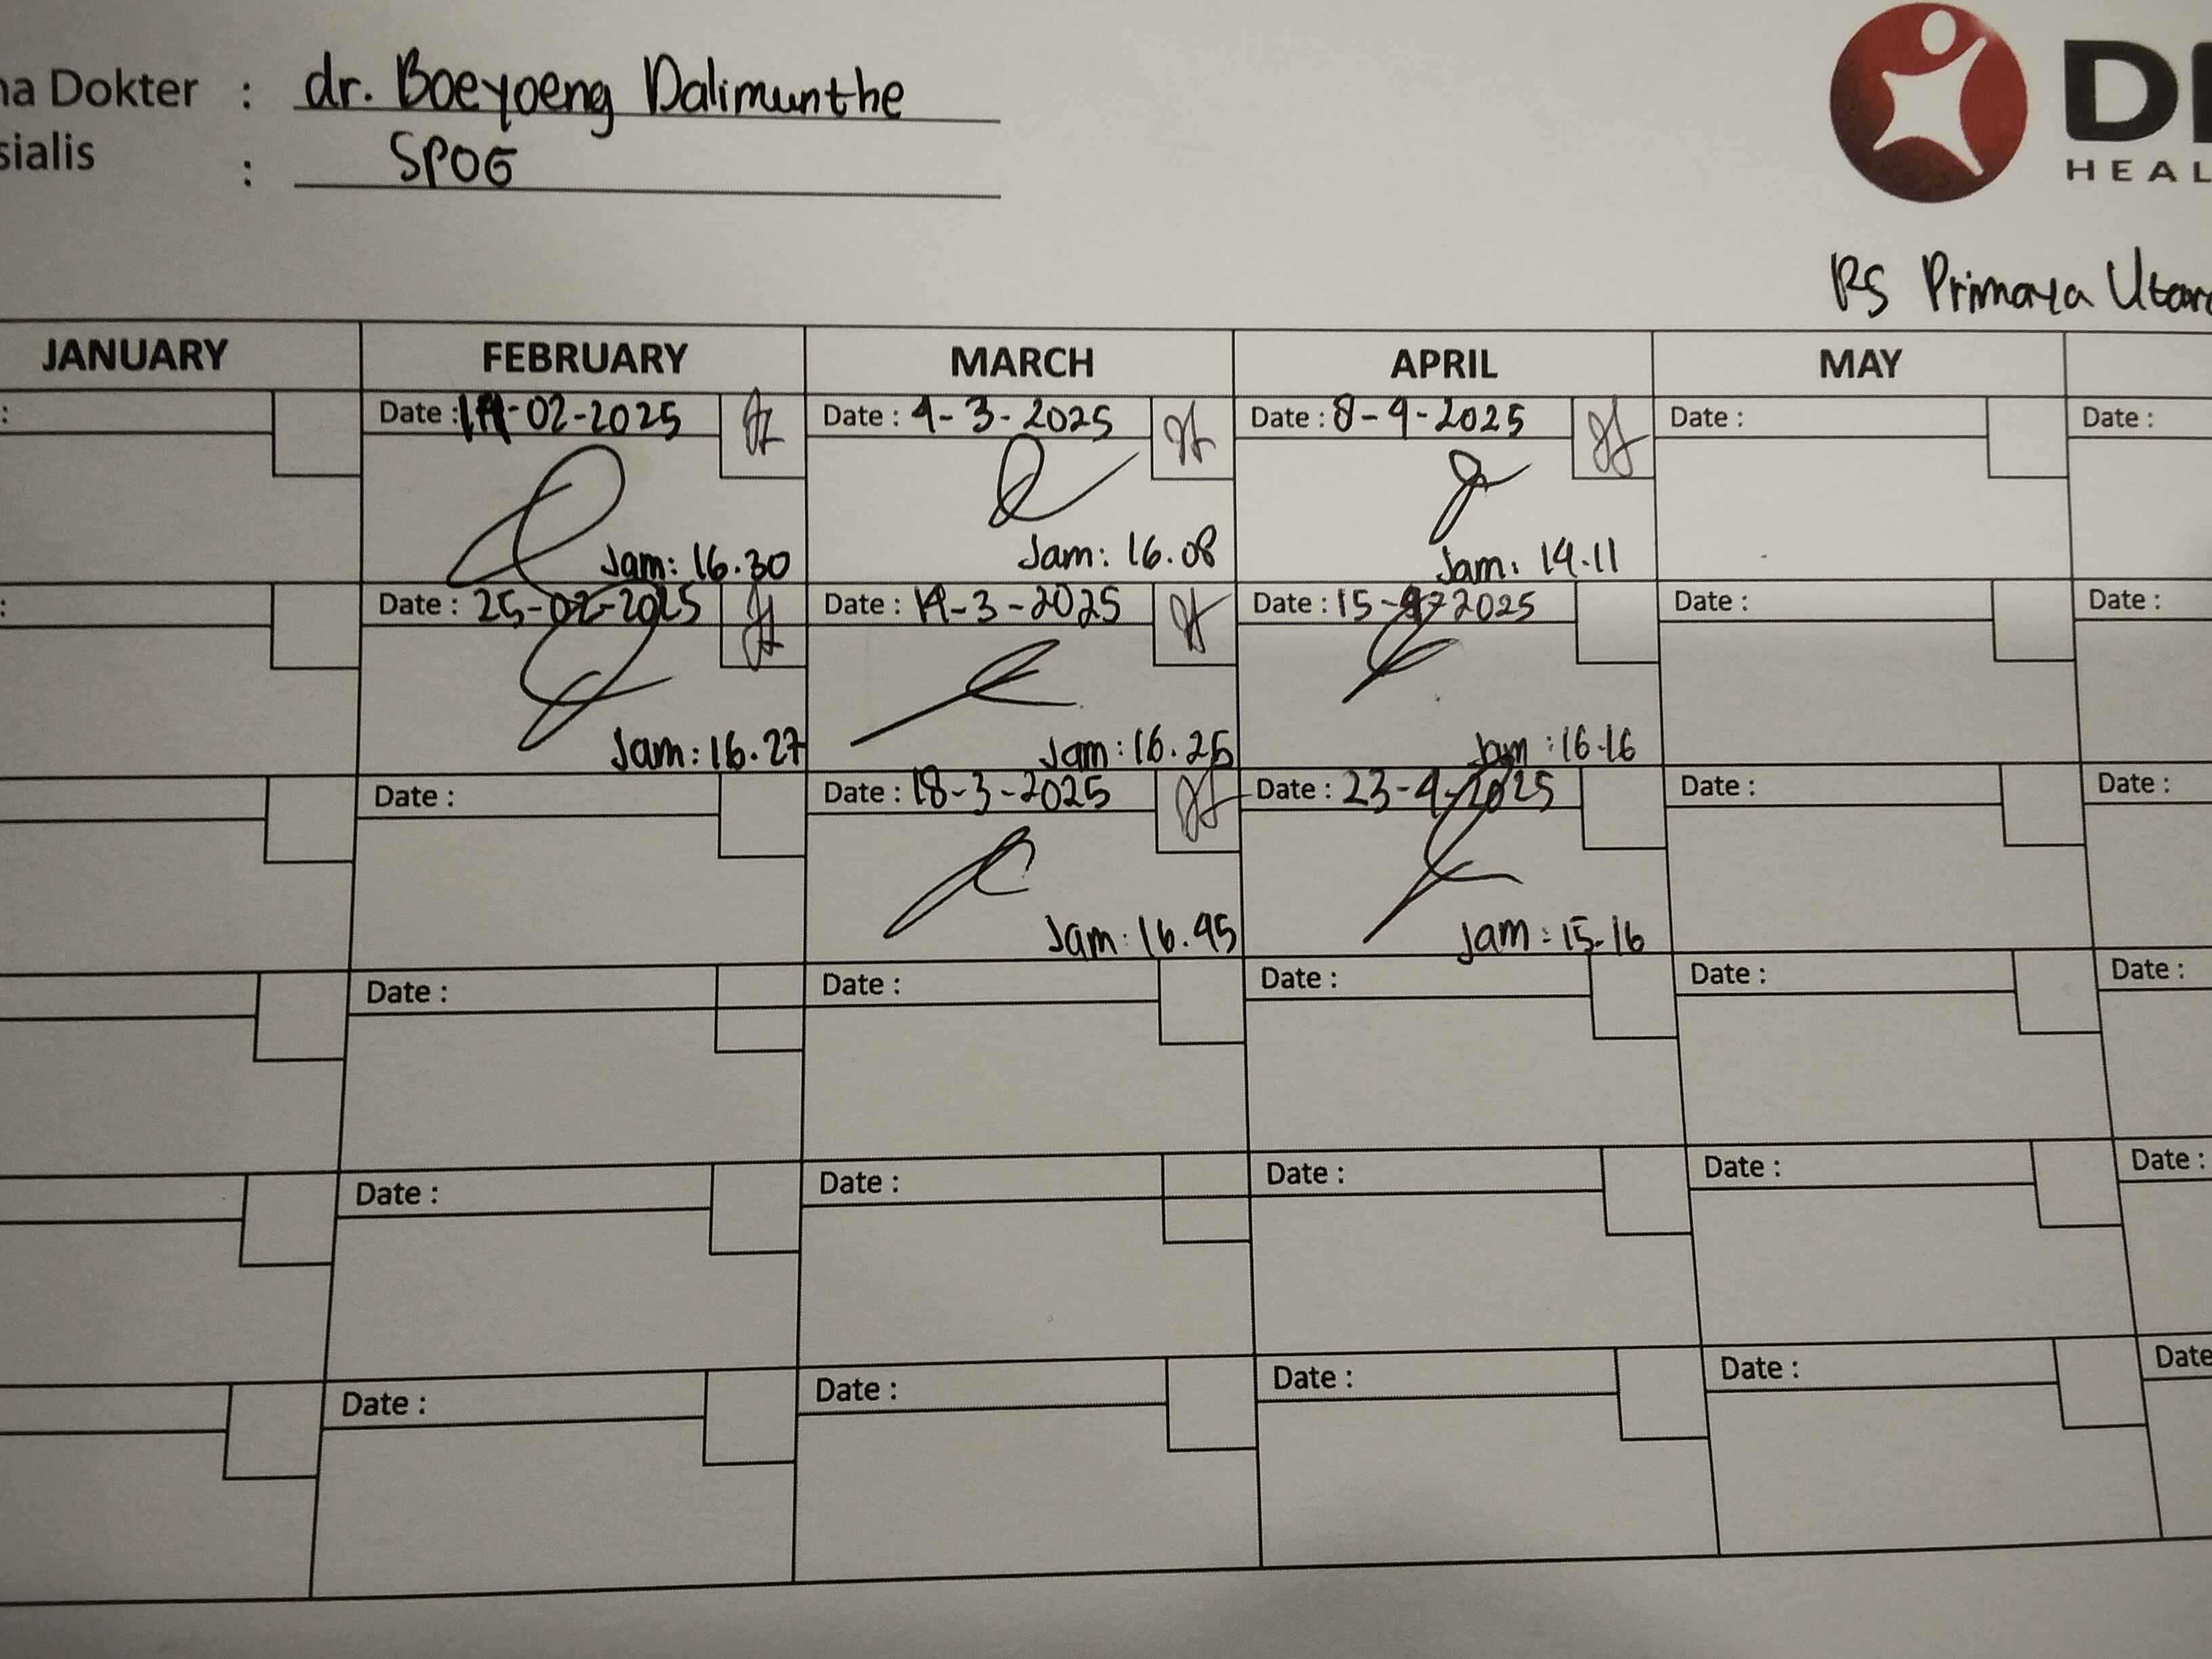 na Dokter : dr. Boeyoeng Dalimunthe
sialis : SPOG
HEAL
RS Primaya Utar
JANUARY FEBRUARY MARCH APRIL MAY
: Date : -02-2025 Date : 4-3-2025 Date : 8-4-2025 Date : Date :
Jam: 16.30 Jam: 16.08 Jam: 14.11
: Date : 25-02-2025 Date : 14-3-2025 Date : 15-4-2025 Date : Date :
Jam: 16.27 Jam: 16.25 Jam: 16.16
Date : Date : 18-3-2025 Date : 23-4-2025 Date : Date :
Jam: 16.45 Jam: 15.16
Date : Date : Date : Date : Date :
Date : Date : Date : Date : Date :
Date : Date : Date : Date : Date